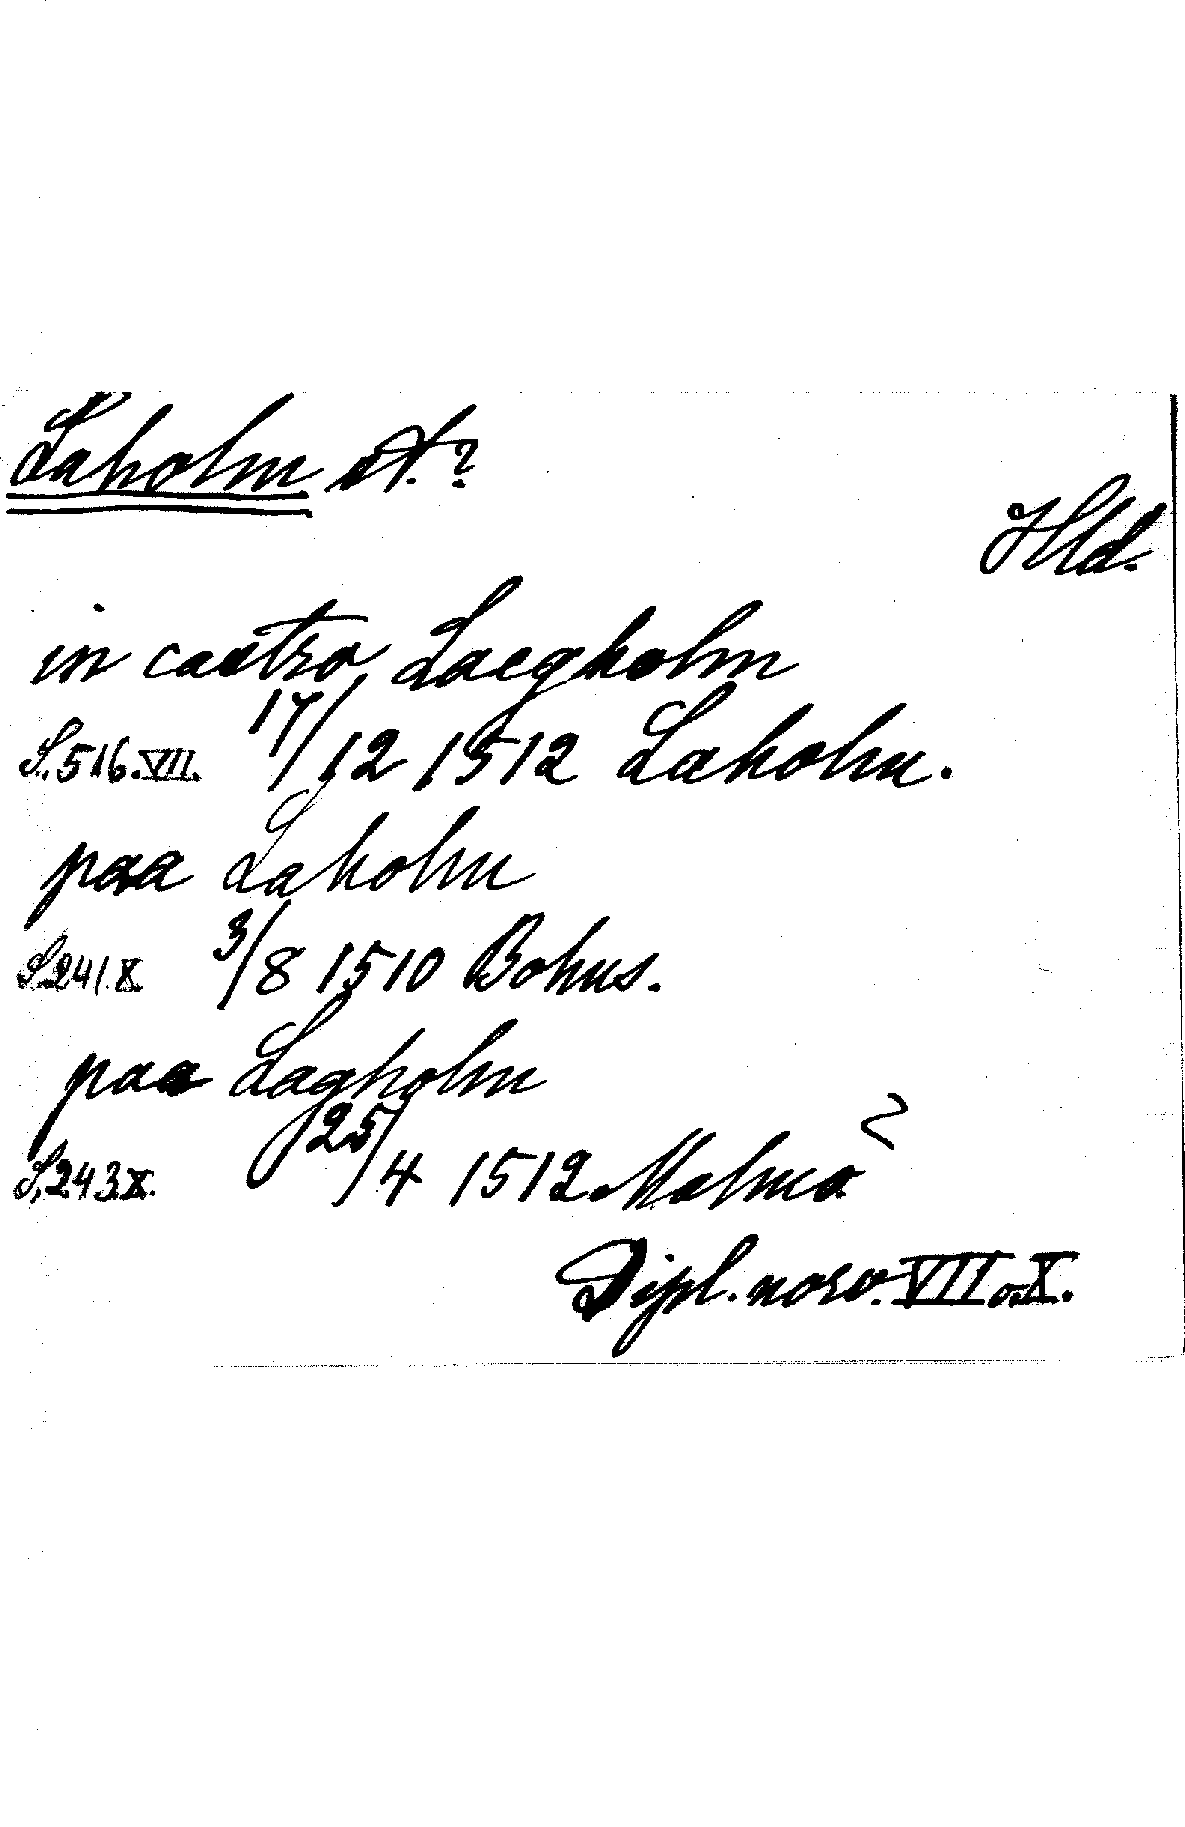 Laholm st.?
Hld.
in castro Laegholm
S. 516. VII. 17/12 1512 Laholm.
paa Laholm
S. 241. X. 3/8 1510 Bohus.
paa Lagholm
S. 243. X. 25/4 1512 Malmö
Dipl. norv. VII o. X.